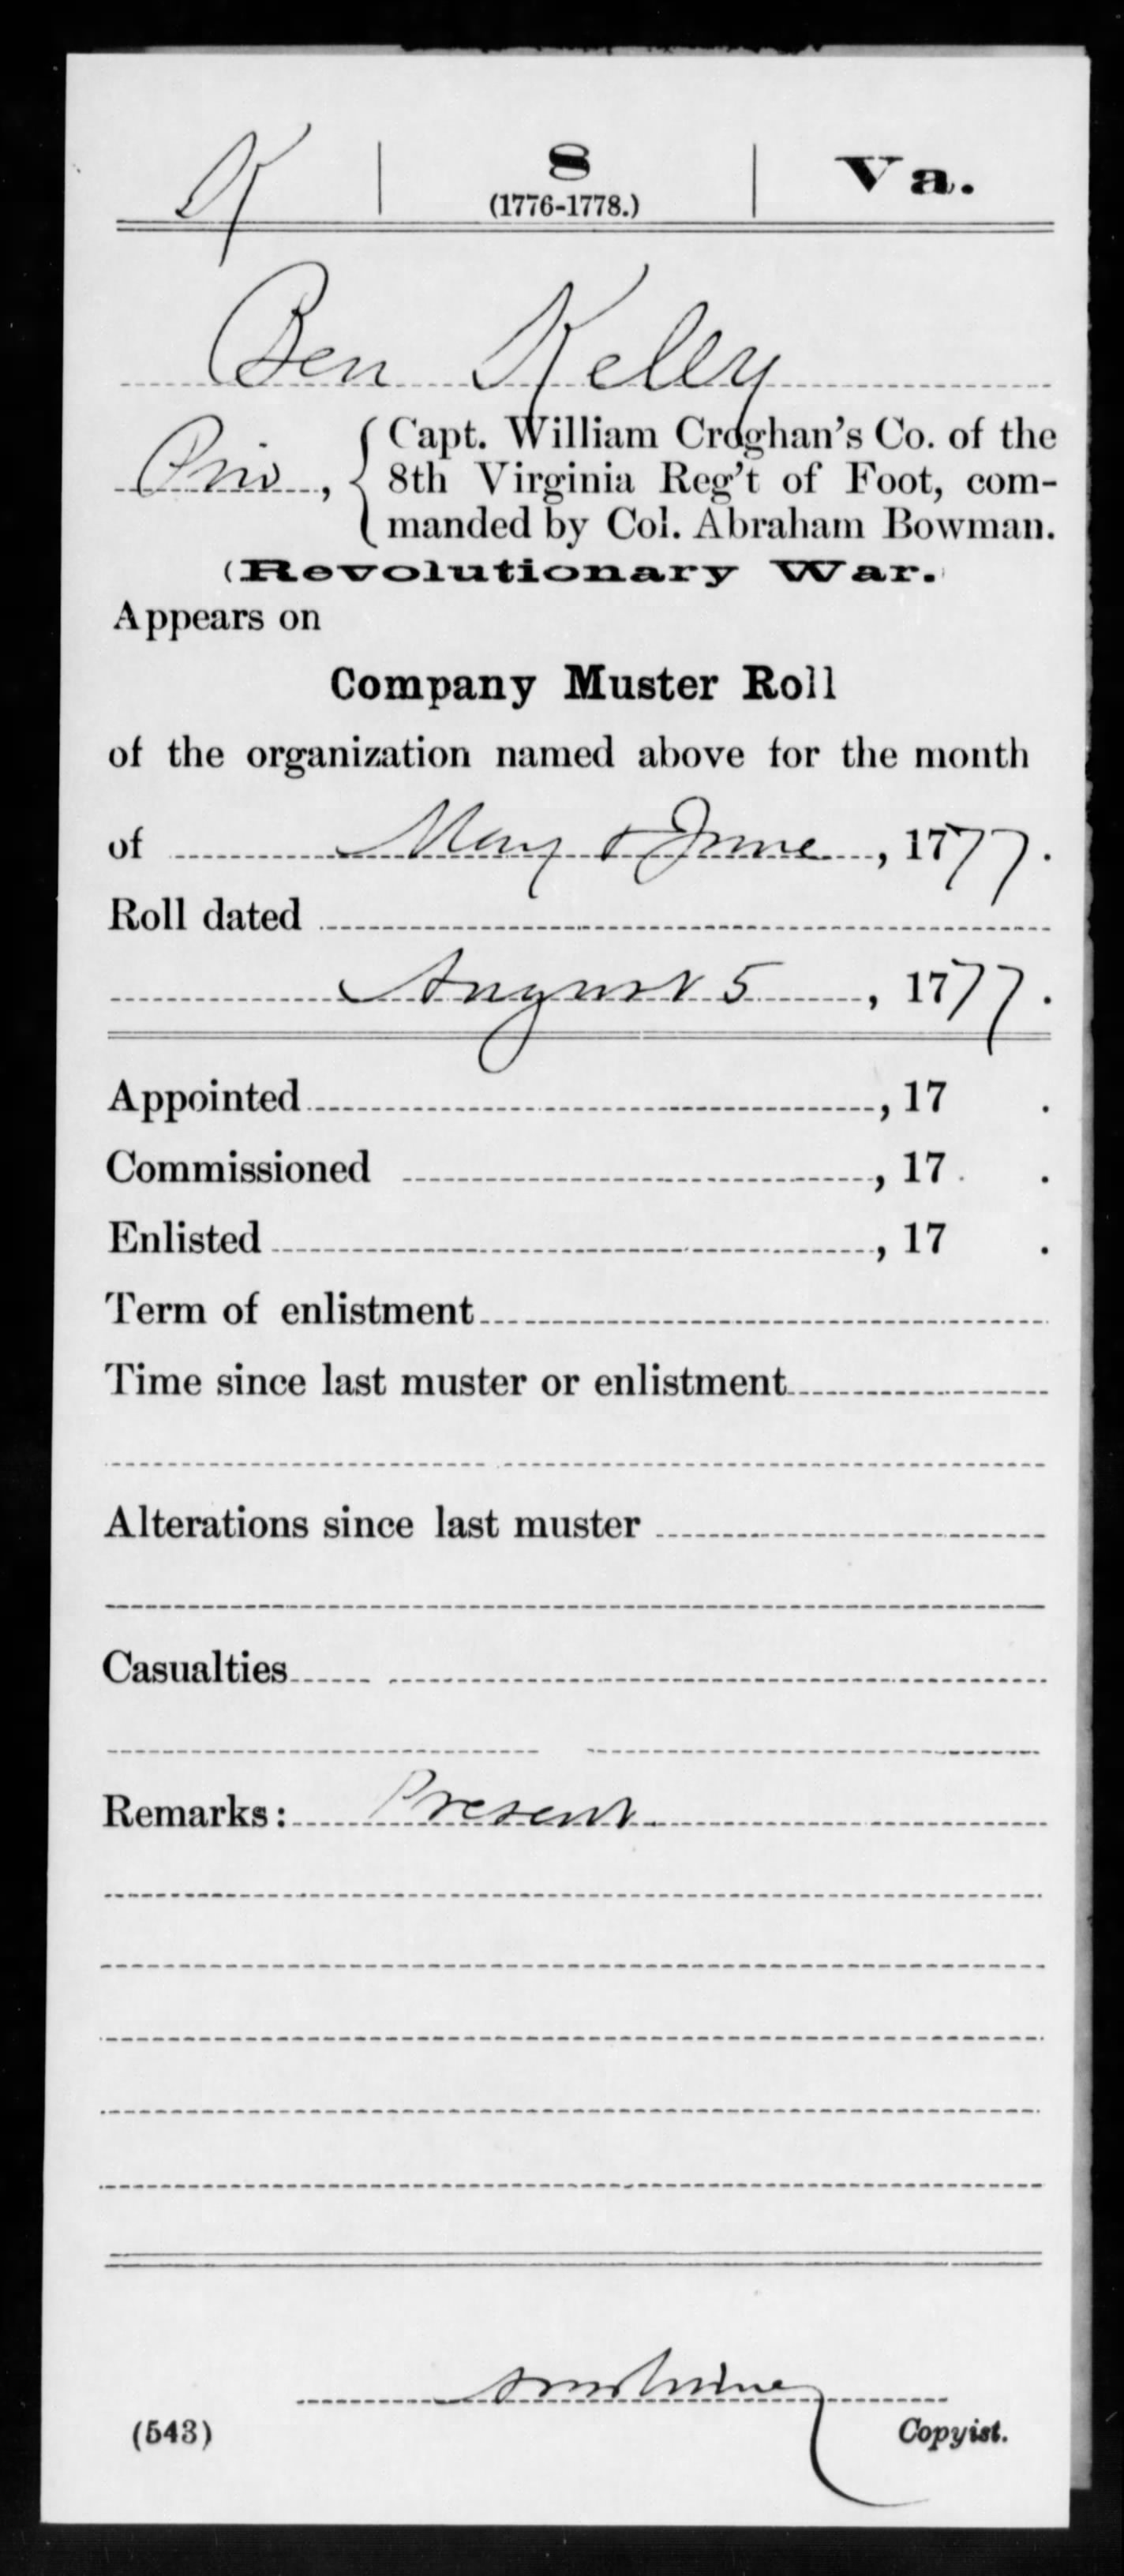 K | 8 | Va.
(1776-1778.)
Ben Kelly
Priv, { Capt. William Croghan's Co. of the
8th Virginia Reg't of Foot, com-
manded by Col. Abraham Bowman.
(Revolutionary War.)
Appears on
Company Muster Roll
of the organization named above for the month
of May & June, 1777.
Roll dated
August 5, 1777.
Appointed, 17 .
Commissioned, 17 .
Enlisted, 17 .
Term of enlistment
Time since last muster or enlistment
Alterations since last muster
Casualties
Remarks: Present
(543)
Copyist.